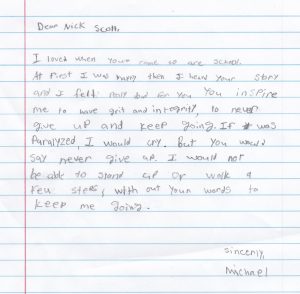 Dear Nick Scott,
I loved when your come to are school.
At first I was happy then I heard your story
and I felt bad for you You inspire
me to have grit and integrity, to never
give up and keep going. If I was
Paralyzed, I would cry. But you would
say never give up. I would not
be able to stand up or walk a
few steps, with out your words to
keep me going.
sincerly,
Michael